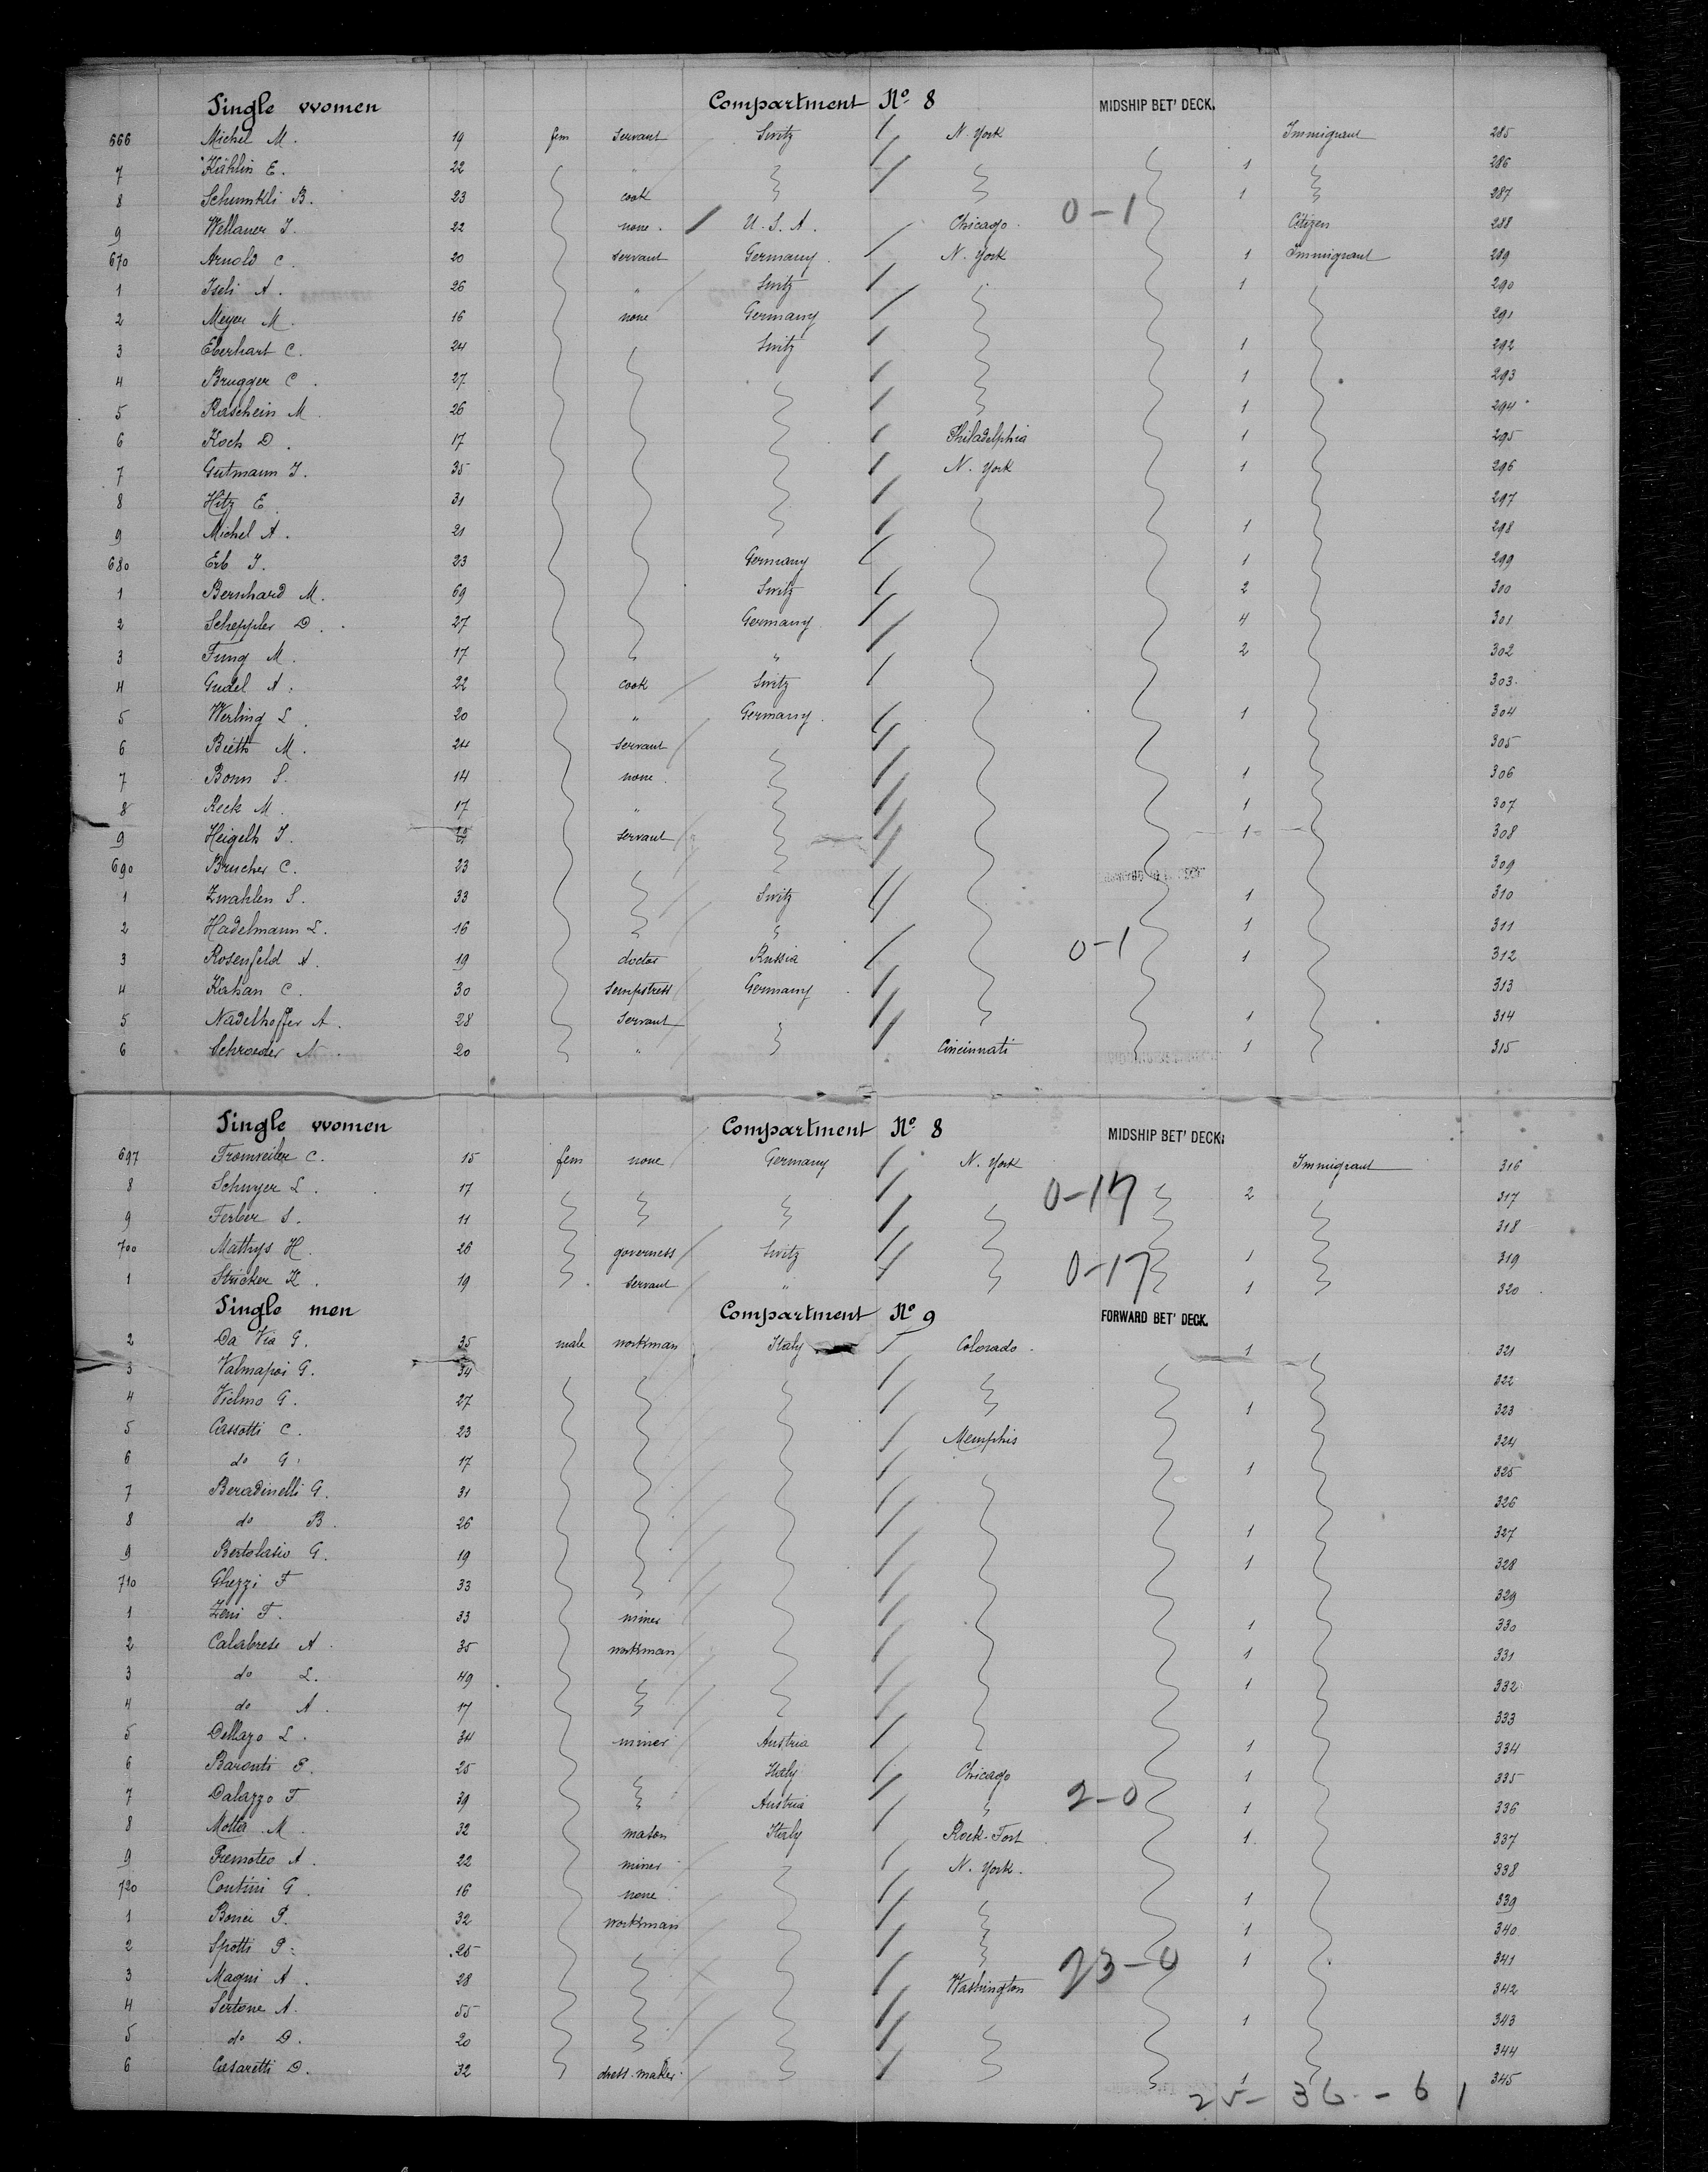 Single women Compartment No. 8 MIDSHIP BET' DECK.
666 Michel M. 19 fem Servant Switz N. York Immigrant 285
7 Kählin E. 22 " 1 286
8 Schumkli B. 23 cook 1 287
0-1
9 Wellauer J. 22 none. U.S.A. Chicago. Citizen 288
670 Arnold C. 20 servant Germany. N. York 1 Immigrant 289
1 Iseli A. 26 " Switz 1 290
2 Meyer M. 16 none Germany 291
3 Eberhart C. 24 Switz 1 292
4 Brugger C. 27 1 293
5 Raschein M. 26 1 294
6 Koch D. 17 Philadelphia 1 295
7 Gutmann J. 35 N. York 1 296
8 Hitz E. 31 297
9 Michel A. 21 1 298
680 Erb J. 23 Germany 1 299
1 Bernhard M. 69 Switz 2 300
2 Scheppler D. 27 Germany. 4 301
3 Fung M. 17 " " 2 302
4 Gudel A. 22 cook Switz 303
5 Werling L. 20 " Germany. 1 304
6 Bieth M. 24 servant 305
7 Bonn S. 14 none. 1 306
8 Reck M. 17 " 1 307
9 Heigelh J. servant 1 308
690 Brucher C. 23 309
1 Zwahlen S. 33 Switz 1 310
2 Hadelmann L. 16 1 311
0-1
3 Rosenfeld A. 19 doctor Russia 1 312
4 Kahan C. 30 sempstress Germany 313
5 Nadelhoffer A. 28 Servant 1 314
6 Schroeder A. 20 " Cincinnati 1 315
Single women Compartment No. 8 MIDSHIP BET' DECK.
697 Fromveiler C. 15 fem none Germany N. York Immigrant 316
8 Schwyer L. 17 0-17 2 317
9 Ferber S. 11 318
700 Mathys H. 26 governess Switz 1 319
0-17
1 Stricker K. 19 servant " 1 320
Single men Compartment No. 9 FORWARD BET' DECK.
2 Da Via G. 35 male workman Italy Colorado. 1 321
3 Valmapoi G. 34 322
4 Vielmo G. 27 1 323
5 Cassotti C. 23 Memphis 324
6 do G. 17 1 325
7 Beradinelli G. 31 326
8 do B. 26 1 327
9 Bertolasio G. 19 1 328
710 Ghezzi F. 33 329
1 Zeni F. 33 miner 1 330
2 Calabrese A. 35 workman 1 331
3 do L. 49 1 332
4 do A. 17 333
5 Dellazo L. 34 miner Austria 1 334
6 Baronti E. 25 Italy Chicago 1 335
2-0
7 Dalazzo F. 39 " Austria " 1 336
8 Motta M. 32 mason Italy Rock-Fort 1. 337
9 Premoteo A. 22 miner N. York. 338
720 Contini G. 16 none 1 339
1 Bonei P. 32 workman 1 340
2 Spotti P. 25 1 341
23-0
3 Magni A. 28 Washington 342
4 Sertone A. 55 1 343
5 do D. 20 344
6 Casaretti D. 32 dress-maker 1 345
25- 36 - 61